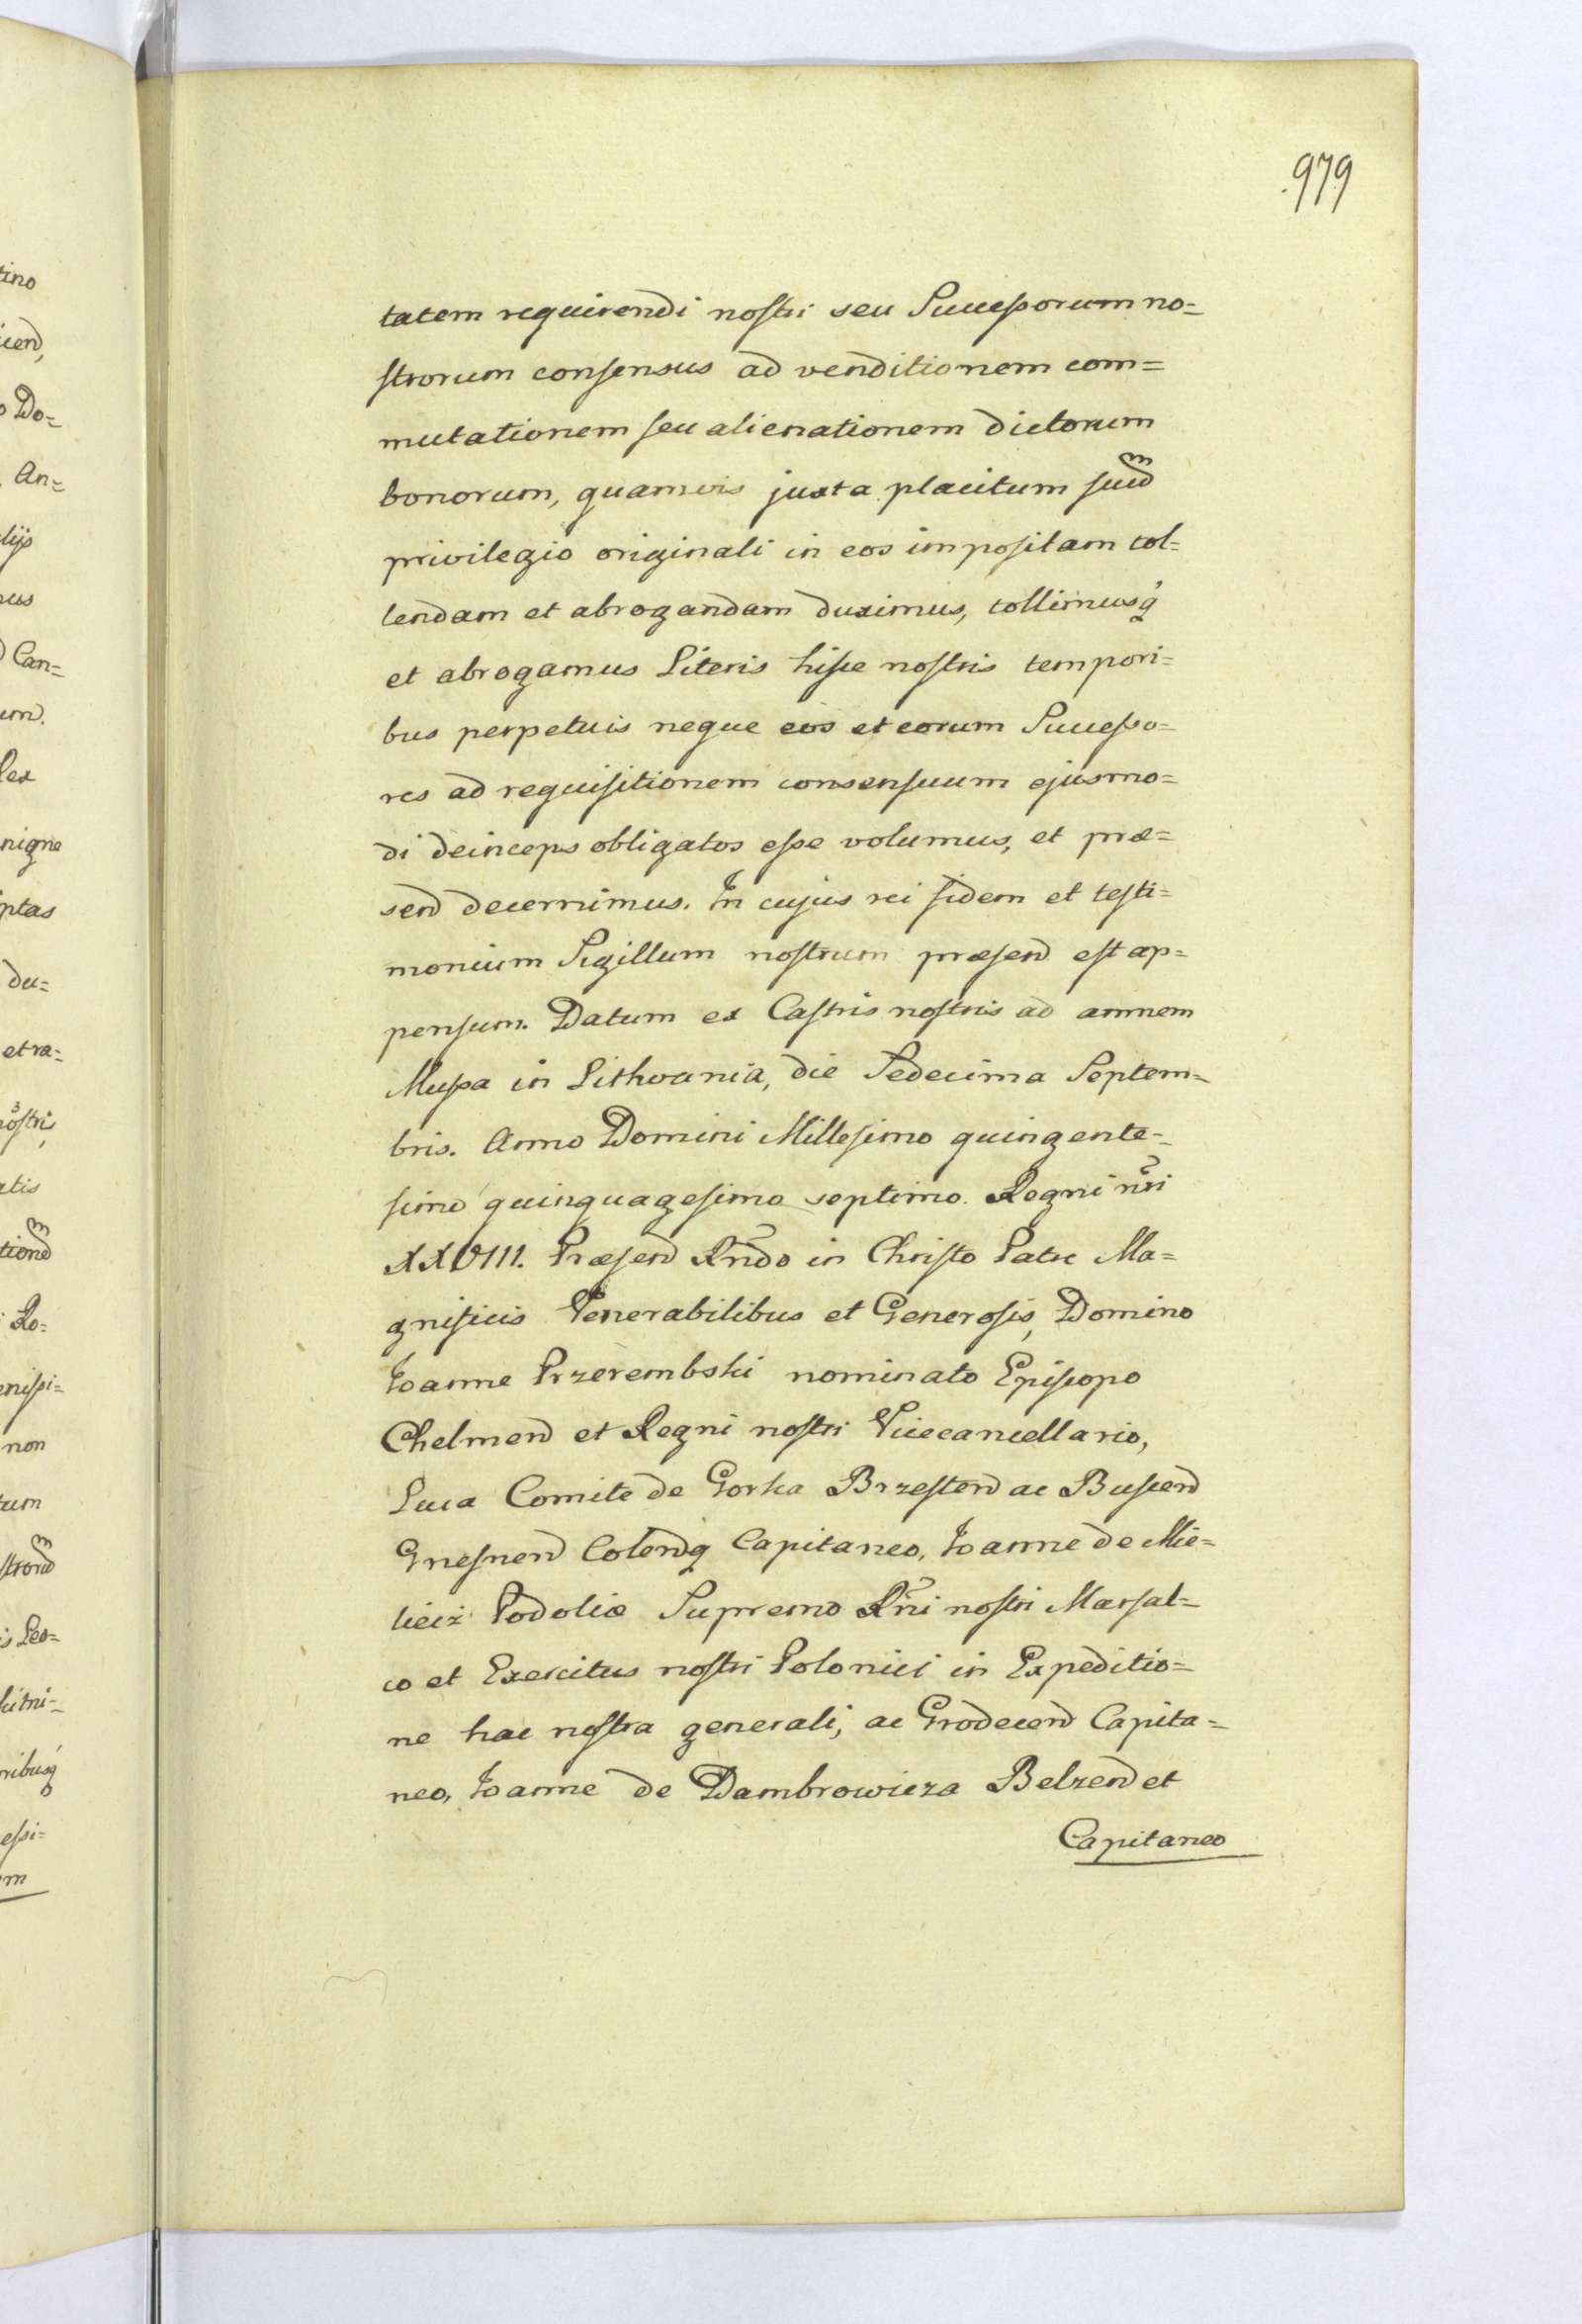 979
tatem requirendi nostri seu Successorum no=
strorum consensus ad venditionem com=
mutationem seu alienationem dictorum
bonorum, quamvis juxta placitum suũ
privilegio originali in eos impositam tol=
lendam et abrogandam duximus, tollimusq́
et abrogamus Literis hisce nostris tempori=
bus perpetuis neque eos et eorum Successo=
res ad requisitionem consensuum ejusmo=
di deinceps obligatos esse volumus, et præ=
send decernimus. In cujus rei fidem et testi=
monium Sigillum nostrum præsend est ap=
pensum. Datum ex Castris nostris ad amnem
Mussa in Lithvania, die Sedecima Septem=
bris. Anno Domini Millesimo quingente=
simo quinquagesimo septimo. Regni nr̃i
XXVIII. Præsend Rñdo in Christo Patre Ma=
gnificis Venerabilibus et Generosis, Domino
Joanne Przerembski nominato Episcopo
Chelmend et Regni nostri Vicecancellario,
Luca Comite de Gorka Brzestend ac Buscend
Gnesnend Colendq Capitaneo, Joanne de Mie=
lieiz Podoliæ Supremo Rñi nostri Marsal=
co et Exercitus nostri Polonici in Expeditio=
ne hac nostra generali, ac Grodecend Capita=
neo, Joanne de Dambrowicza Belzend et
Capitaneo
tino
iend,
o Do=
An=
lijs
nus
Can=
um.
lex
nigne
ptas
du=
et ra=
nostri,
atis
tionẽ
Ro=
enissi=
non
tum
strorũ
is Leo=
kitni=
ribusq́
essi=
m